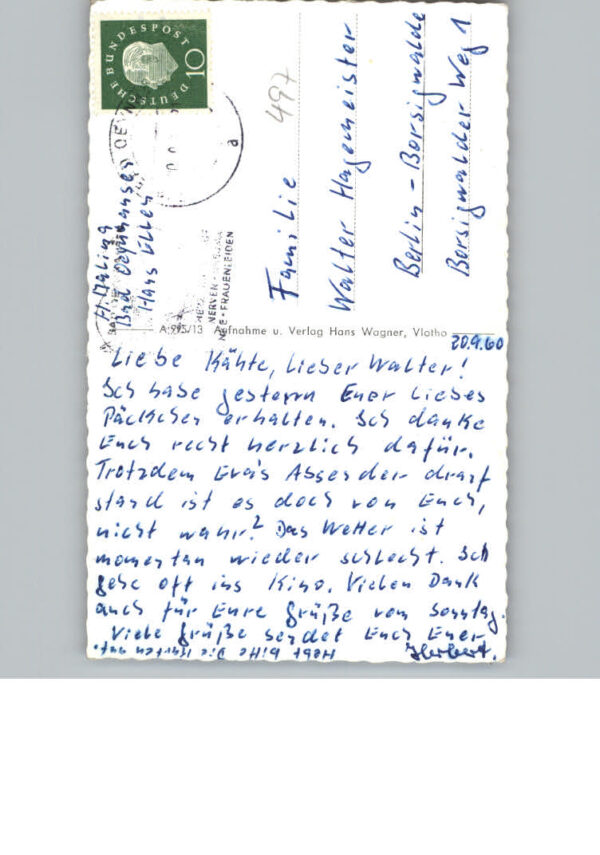 DEUTSCHE BUNDESPOST
10
a
NERVEN-
FRAUENLEIDEN
497
Familie
Walter Hagemeister
Berlin - Borsigwalde
Borsigwalder Weg 1
H. 
Bad Oeynhausen
Haus Ellen
A 995/13 Aufnahme u. Verlag Hans Wagner, Vlotho
20.9.60
Liebe Käthe, Lieber Walter!
Ich habe gestern Euer liebes
Päckchen erhalten. Ich danke
Euch recht herzlich dafür.
Trotzdem Eva's Absender drauf
stand ist es doch von Euch,
nicht wahr? Das Wetter ist
momentan wieder schlecht. Ich
gehe oft ins Kino. Vielen Dank
auch für Eure Grüße vom Sonntag.
Viele Grüße sendet Euch Euer
Herbert.
Hebt bitte die Karten auf.